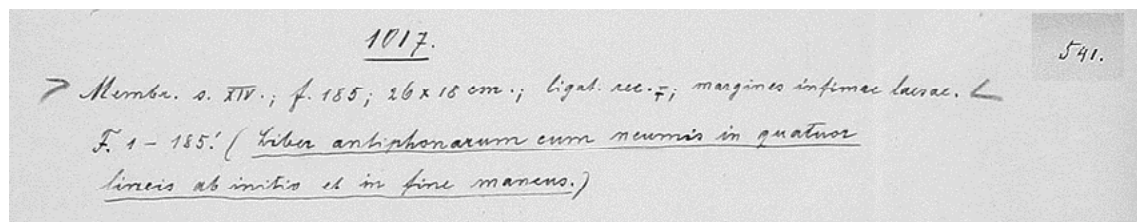 1017.
541.
Membr. s. XIV.; f. 185; 26 x 18 cm.; ligat. rec.; margines infimae laesae.
F. 1 - 185.' (Liber antiphonarum cum neumis in quatuor
lineis ab initio et in fine mancus.)